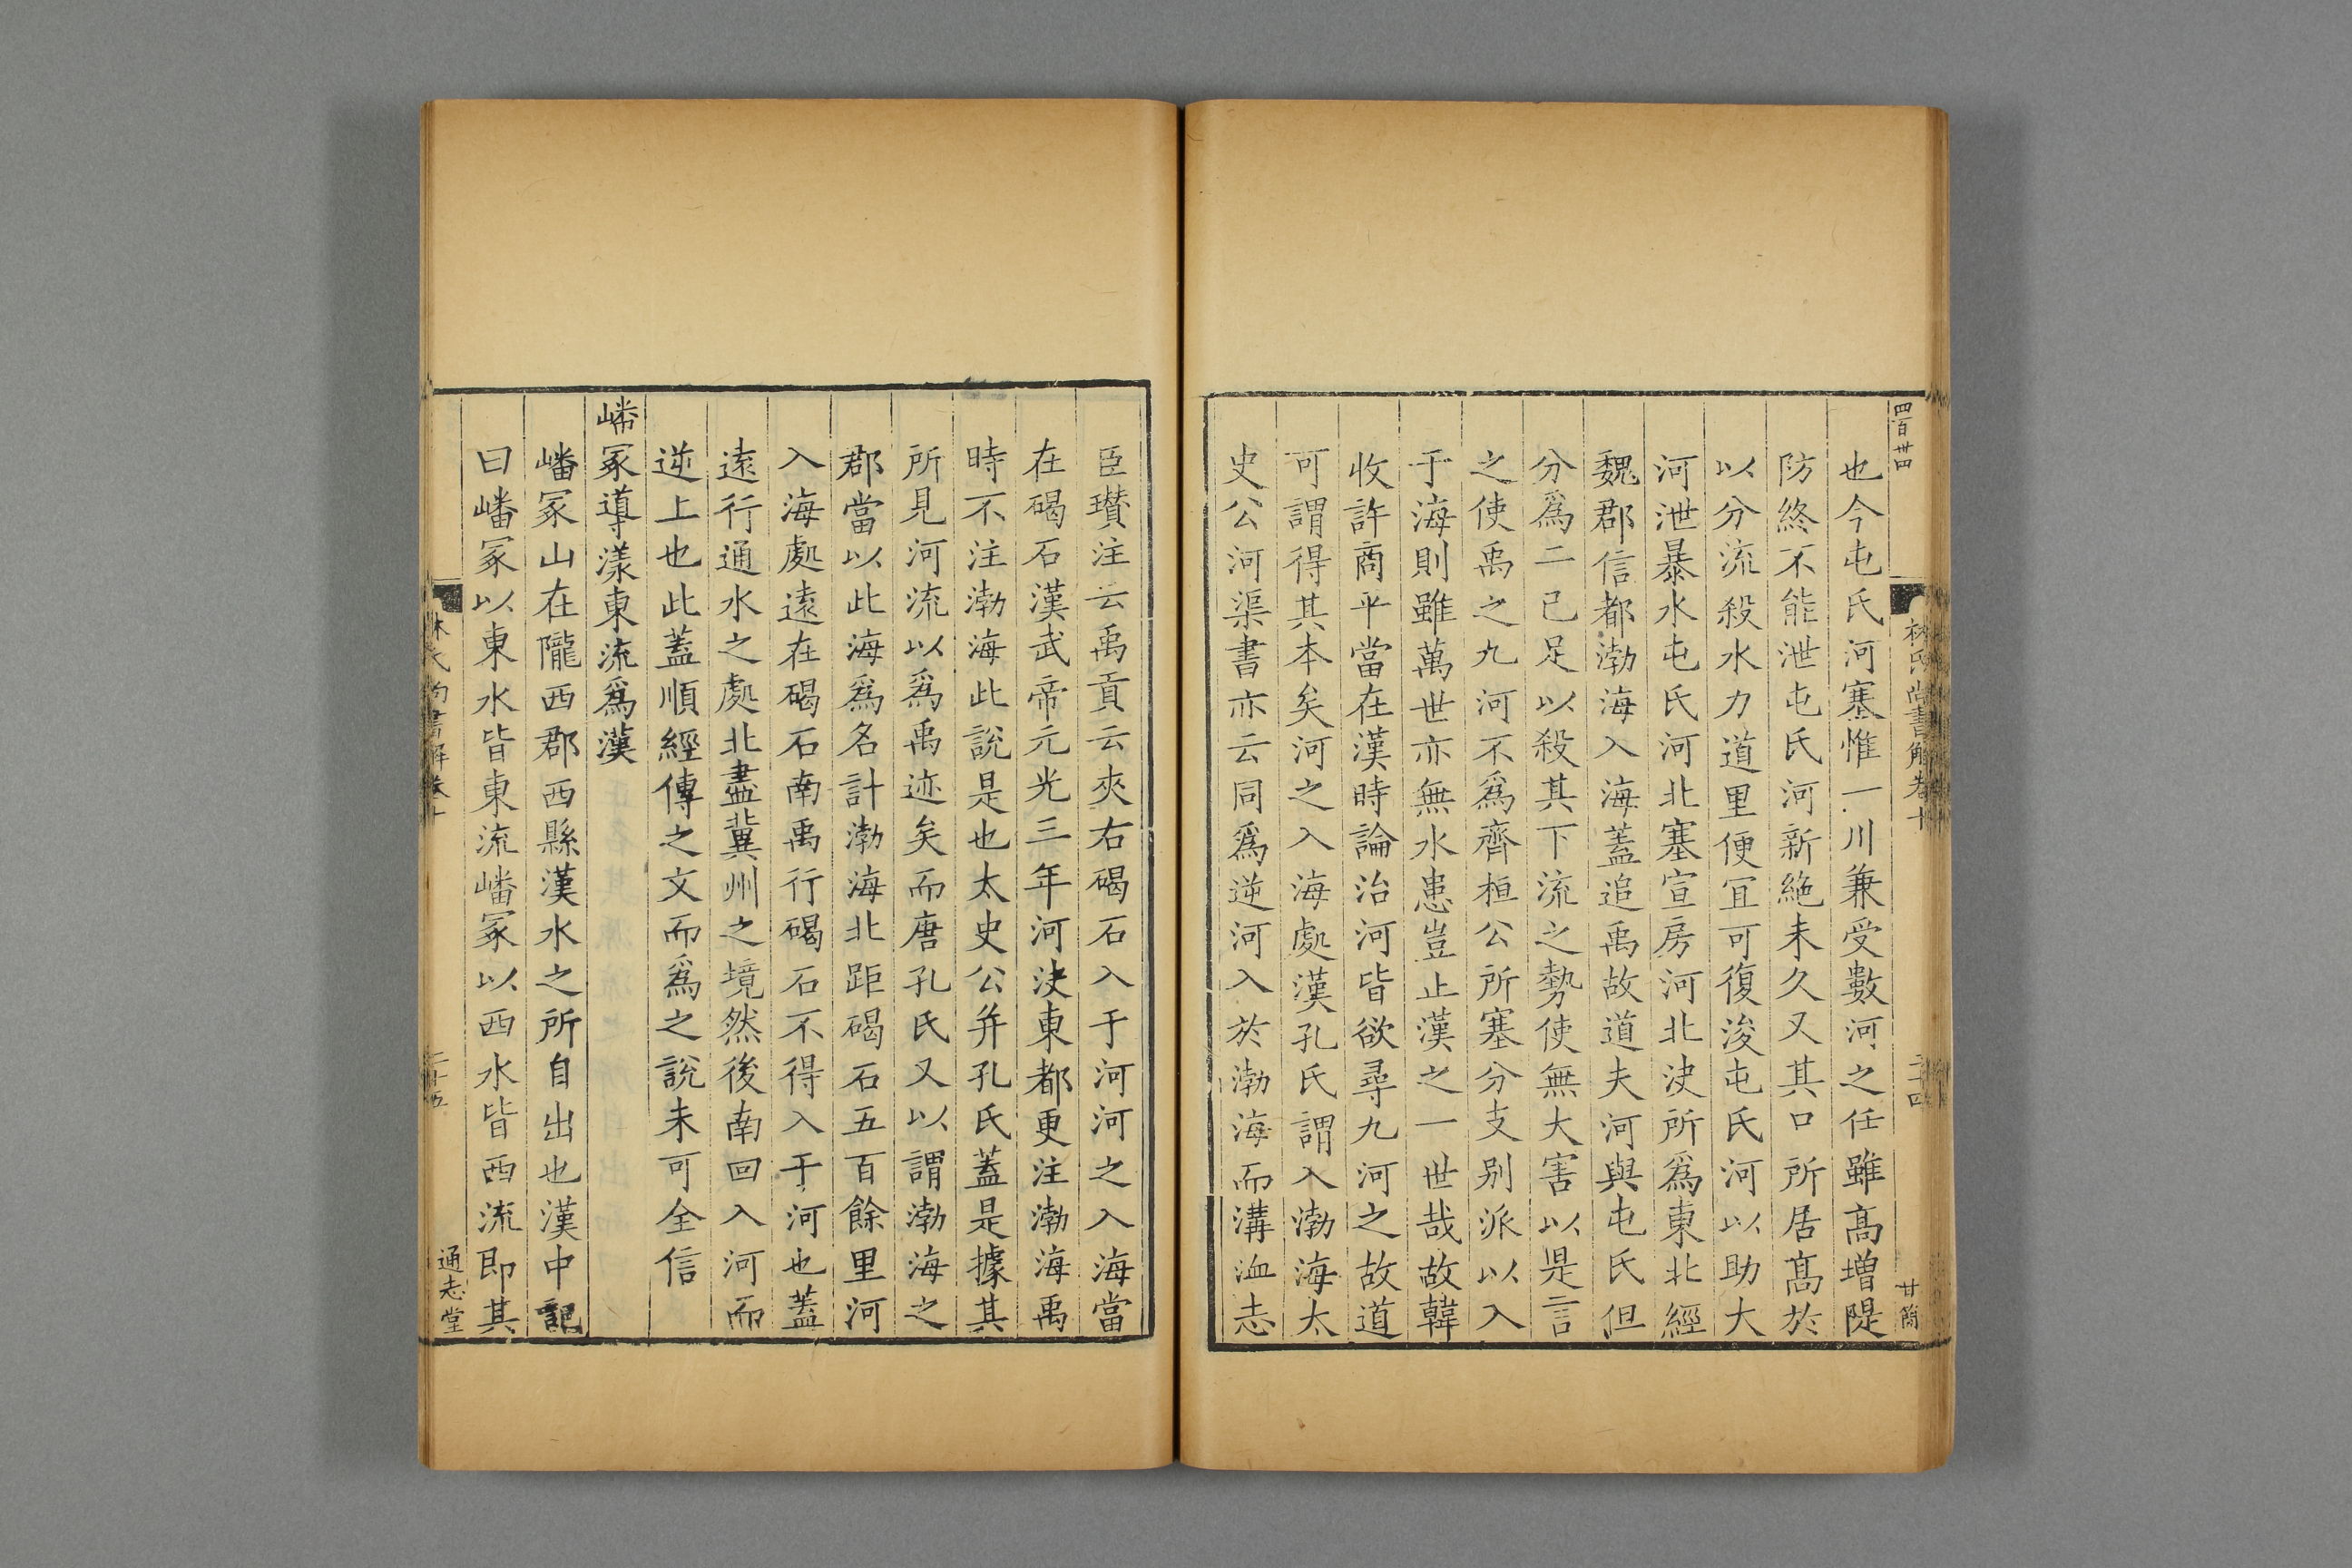 四百廿四
林氏尚書解卷十
二十四
甘簡
也今屯氏河塞惟一川兼受數河之任雖髙增隄
防終不能泄屯氏河新絶未久又其口所居髙於
以分流殺水力道里便宜可復浚屯氏河以助大
河泄暴水屯氏河北塞宣房河北决所爲東北經
魏郡信都渤海入海蓋追禹故道夫河與屯氏但
分爲二已足以殺其下流之勢使無大害以是言
之使禹之九河不爲齊桓公所塞分支别派以入
于海則雖萬世亦無水患豈止漢之一世哉故韓
收許商平當在漢時論治河皆欲尋九河之故道
可謂得其本矣河之入海處漢孔氏謂入渤海太
史公河渠書亦云同爲逆河入於渤海而溝洫志
臣瓚注云禹貢云夾右碣石入于河河之入海當
在碣石漢武帝元光三年河决東都更注渤海禹
時不注渤海此說是也太史公并孔氏蓋是據其
所見河流以爲禹迹矣而唐孔氏又以謂渤海之
郡當以此海爲名計渤海北距碣石五百餘里河
入海處逺在碣石南禹行碣石不得入于河也蓋
逺行通水之處北盡冀州之境然後南回入河而
逆上也此蓋順經傳之文而爲之說未可全信
嶓冢導漾東流爲漢
嶓冢山在隴西郡西縣漢水之所自出也漢中記
曰嶓冢以東水皆東流嶓冢以西水皆西流即其
林氏尚書解卷十
二十五
通志堂